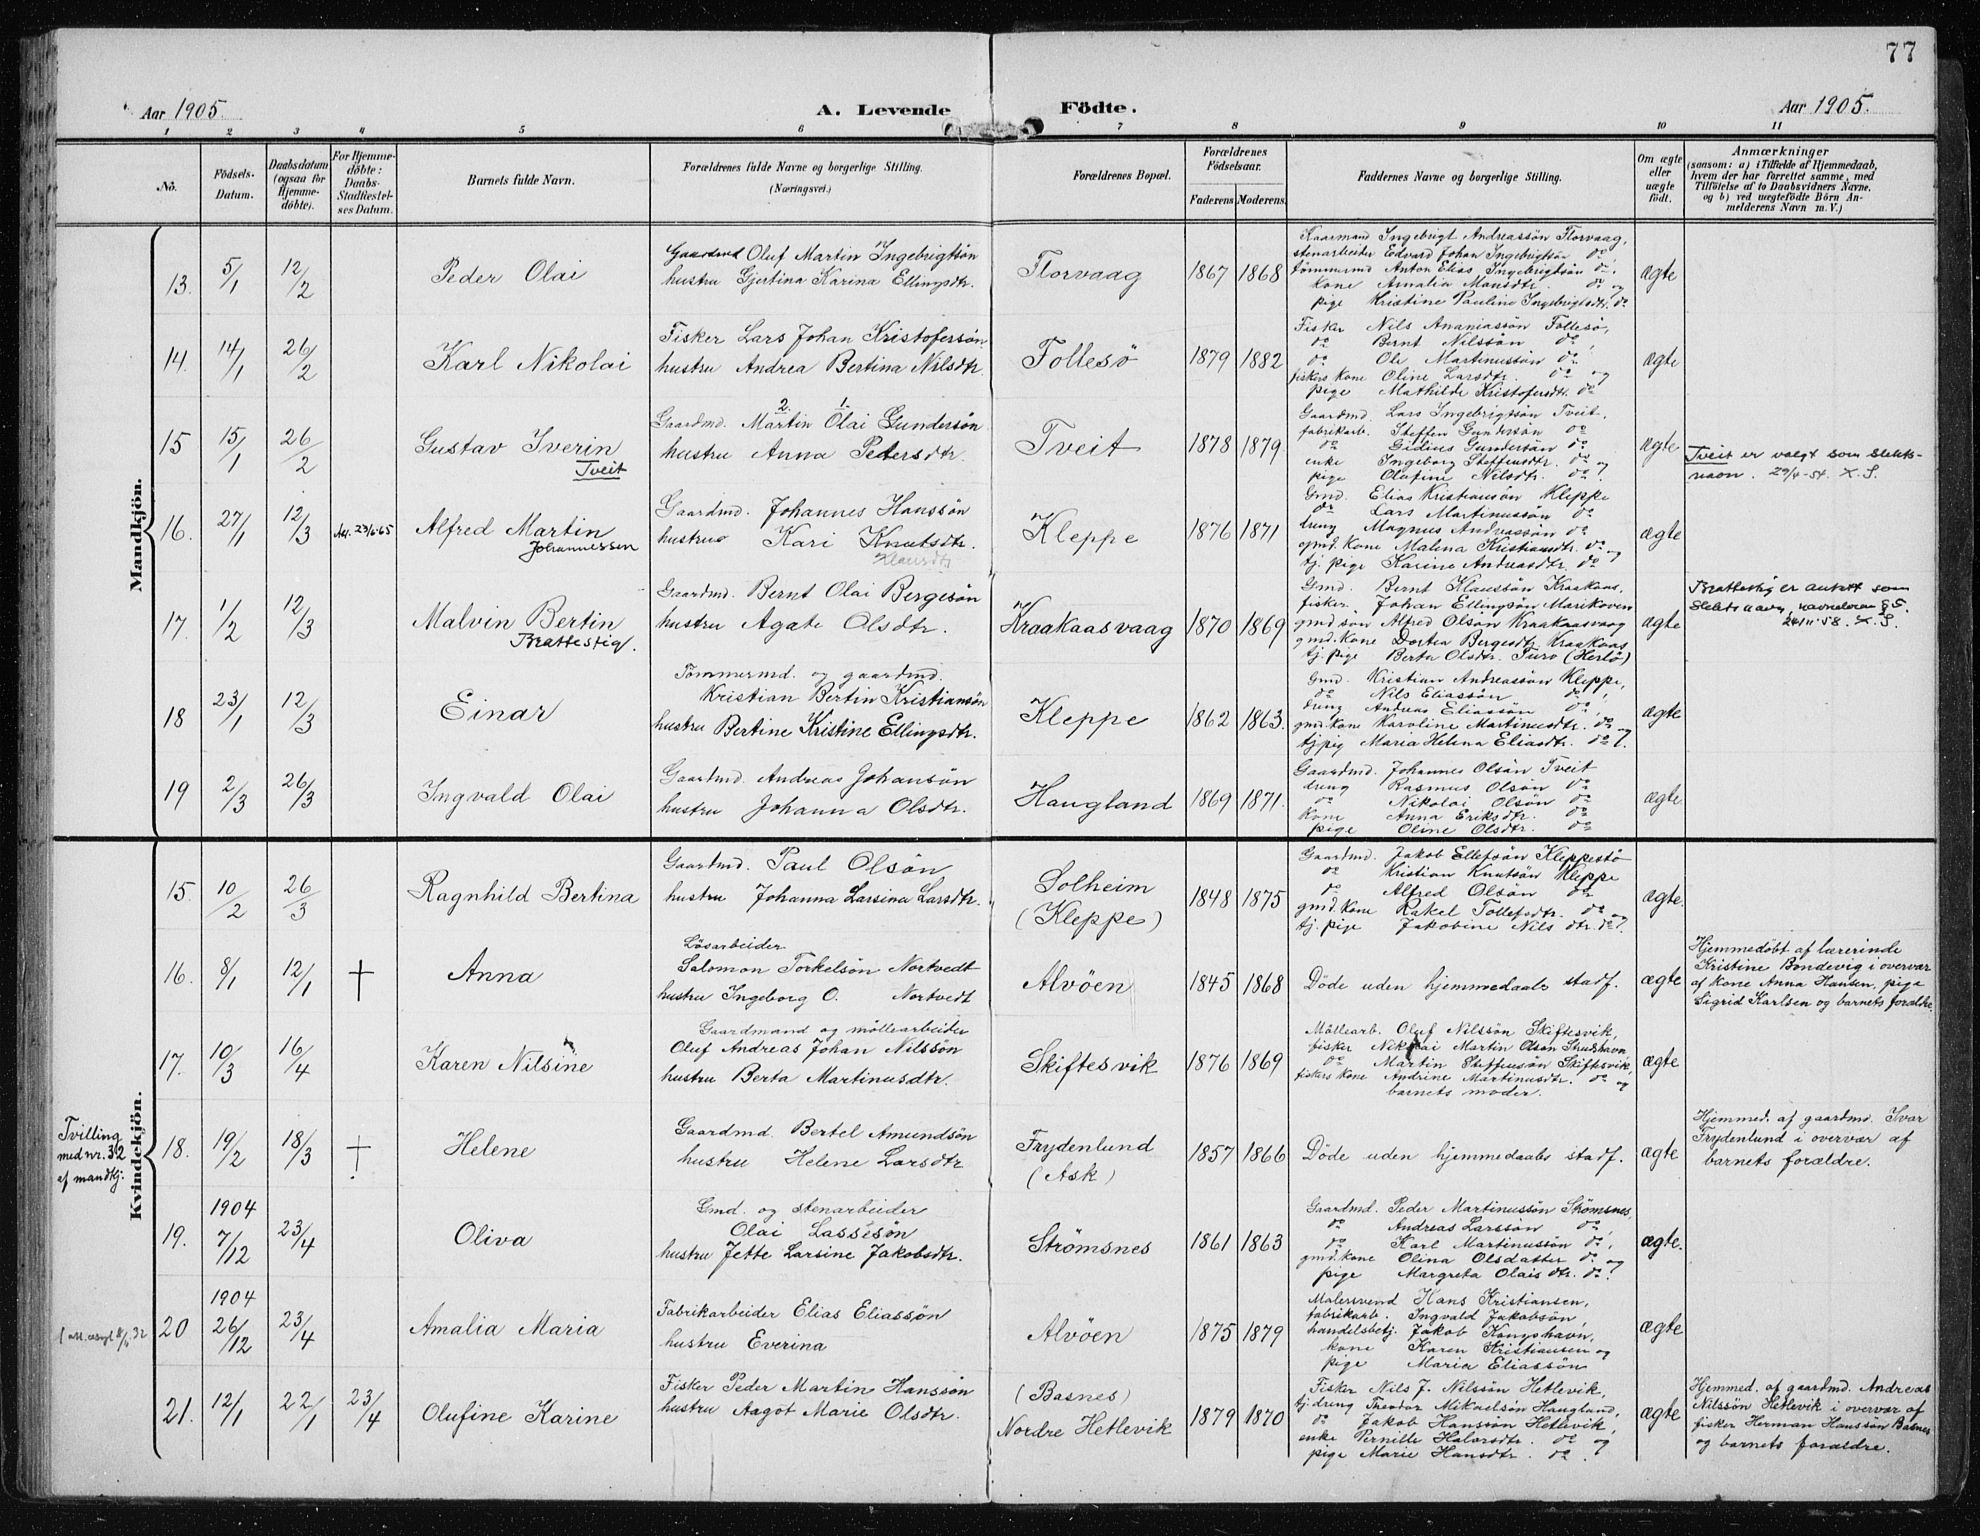 77
Aar 1905. A. Levende Födte. Aar 1905.
1 2 3 4 5 6 7 8 9 10 11
No.
Födsels-
Datum.
Daabsdatum
(ogsaa for
Hjemme-
döbte).
For Hjemme-
döbte:
Daabs-
Stadfæstel-
ses Datum.
Barnets fulde Navn.
Forældrenes fulde Navne og borgerlige Stilling.
(Næringsvei.)
Forældrenes Bopæl.
Forældrenes
Födselsaar.
Faderens Moderens.
Faddernes Navne og borgerlige Stilling.
Om ægte
eller
uægte
födt.
Anmærkninger
(saasom: a) i Tilfælde af Hjemmedaab,
hvem der har forrettet samme, med
Tilföielse af to Daabsvidners Navne.
og b) ved uægtefödte Börn An-
melderens Navn m. V.)
Mandkjön.
13. 5/1 12/2
Peder Olai
Gaardmd Oluf Martin Ingebrigtsön
hustru Gjertina Karina Ellingsdtr.
Florvaag
1867 1868
Kaarmand Ingebrigt Andreassön Florvaag,
stenarbeider Edvard Johan Ingebrigtsön do,
tömmermd Anton Elias Ingebrigtsön do,
kone Amalia Mansdtr. do og
pige Kristine Pauline Ingebrigtsdtr. do
ægte
14. 14/1 26/2
Karl Nikolai
Fisker Lars Johan Kristofersön
hustru Andrea Bertina Nilsdtr.
Follesö
1879 1882
Fisker Nils Ananiassön Follesö,
do Bernt Nilssön do,
do Ole Martinussön do
fiskers kone Oline Larsdtr. do og
pige Mathilde Kristofersdtr. do
ægte
15 15/1 26/2
Gustav Iverin
Tveit
2. 1.
Gaardmd. Martin Olai Gundersön
hustru Anna Pedersdtr.
Tveit
1878 1879
Gaardmd. Lars Ingebrigtsön Tveit,
fabrikarb. Steffen Gundersön do
do Gidius Gundersön do
enke Ingeborg Steffensdtr. do og
pige Olufine Nilsdtr. do.
ægte
Tveit er valgt som slekts-
navn. 29/4-54. X.S.
16. 27/1 12/3 Att. 23/6-65
Alfred Martin
Johannessen
Gaardmd. Johannes Hanssön
hustru Kari Knutsdtr.
Klausdtr
Kleppe
1876 1871
Gmd. Elias Kristiansön Kleppe
do Lars Martinussön do
dreng Magnus Andreassön do
gmd. kone Malena Kristiansdtr. do og
tj. pige Karine Andreasdtr. do
ægte
17. 1/2 12/3
Malvin Bertin
Brattestig.
Gaardmd. Bernt Olai Bergesön
hustru Agate Olsdtr.
Kraakaasvaag
1870 1869
Gmd. Bernt Klaussön Kraakaas,
fisker Johan Ellingsön Marikoven
gmd sön Alfred Olsön Kraakaasvaag
gmd. kone Dortea Bergesdtr Kraakaas
tj. pige Berta Olsdtr. Turö (Herlö)
ægte
Brattestig er antatt som
slektsnavn, navneloven § 5.
24/11-58. X.S.
18 23/1 12/3
Einar
Tömmermd. og gaardmd.
Kristian Bertin Kristiansön
hustru Bertine Kristine Ellingsdtr.
Kleppe
1862 1863.
Gmd. Kristian Andreassön Kleppe,
do Nils Eliassön do,
dreng Andreas Eliassön do,
gmd. kone Karoline Martinusdtr. do og
tj pig Maria Helena Eliasdtr. do.
ægte
19 2/3 26/3
Ingvald Olai
Gaardmd. Andreas Johansön
hustru Johanna Olsdtr.
Haugland
1869 1871.
Gaardmd. Johannes Olsön Tveit
dreng Rasmus Olsön do
do Nikolai Olsön do
kone Anna Eriksdtr. do
pige Oline Olsdtr. do
ægte.
Kvindekjön.
15. 10/2 26/3
Ragnhild Bertina
Gaardmd. Paul Olsön
hustru Johanna Larsina Larsdtr.
Solheim
(Kleppe)
1848 1875
Gaardmd. Jakob Ellefsön Kleppestö
do Kristian Knutsön Kleppe
do Alfred Olsön do
gmd. kone Rakel Tollefsdtr. do og
tj. pige Jakobine Nilsdtr. do.
ægte.
16. 8/1 12/1 +
Anna
Lösarbeider
Salomon Torkelsön Nortvedt
hustru Ingeborg O. Nortvedt
Alvöen
1845 1868
Döde uden hjemmedaabs stadf.
ægte
Hjemmedöbt af lærerinde
Kristine Bondevig i overvær
af kone Anna Hansen, pige
Sigrid Karlsen og barnets forældre
17. 10/3 16/4
Karen Nilsine
Gaardmand og möllearbeider
Oluf Andreas Johan Nilssön
hustru Berta Martinusdtr.
Skiftesvik
1876 1869
Möllearb. Oluf Nilssön Skiftesvik,
fisker Nikolai Martin Olsön Strushavn
do Martin Steffensön Skiftesvik,
fiskers kone Andrine Martinusdtr. do og
barnets moder.
ægte
Tvilling
med nr. 32
af mandkj:
18. 19/2 18/3 +
Helene
Gaardmd. Bertel Amundsön
hustru Helene Larsdtr
Frydenlund
(Ask)
1857 1866
Döde uden hjemmedaabs stadf.
ægte
Hjemmed. af gaardmd. Ivar
Frydenlund i overvær af
barnets forældre.
19. 1904 7/12 23/4
Oliva
Gmd. og stenarbeider
Olai Lassesön
hustru Jette Larsine Jakobsdtr.
Strömsnes
1861 1863
Gaardmd. Peder Martinussön Strömsnes,
do Andreas Larssön do,
do Karl Martinussön do,
gmd. kone Olina Olsdatter do og
pige Margreta Olaisdtr. do.
ægte.
20 1904 26/12 23/4
Amalia Maria
Fabrikarbeider Elias Eliassön
hustru Everina
Alvöen
1875 1879
Malersvend Hans Kristiansen,
fabrikarb. Ingvald Jakobsön,
handelsbetj. Jakob Kongshavn,
kone Karen Kristiansen og
pige Maria Eliassön
ægte
21. 12/1 22/1 23/4
Olufine Karine
Fisker Peder Martin Hanssön
hustru Aagot Marie Olsdtr.
(Basnes)
Nordre Hetlevik
1879 1870
Fisker Nils J. Nilssön Hetlevik,
tj. dreng Theodor Mikaelsön Haugland,
do Jakob Hanssön Hetlevik,
enke Pernille Halvorsdtr. do og
pige Marie Hansdtr. do.
ægte
Hjemmed. af gaardmd. Andreas
Nilssön Hetlevik i overvær af
fisker Herman Hanssön Basnes
og barnets forældre.